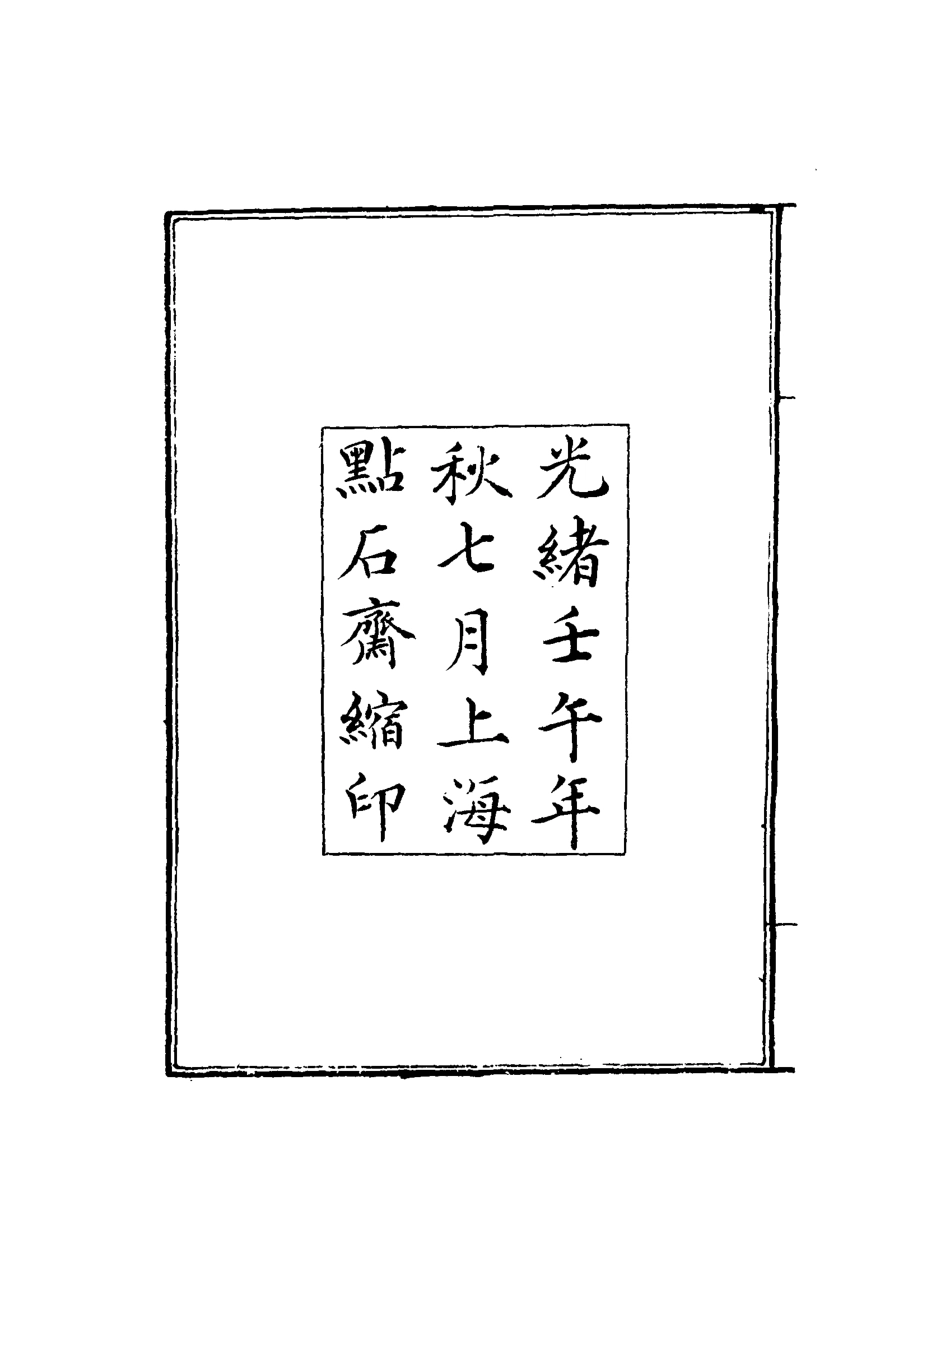 光緒壬午年
秋七月上海
點石齋縮印